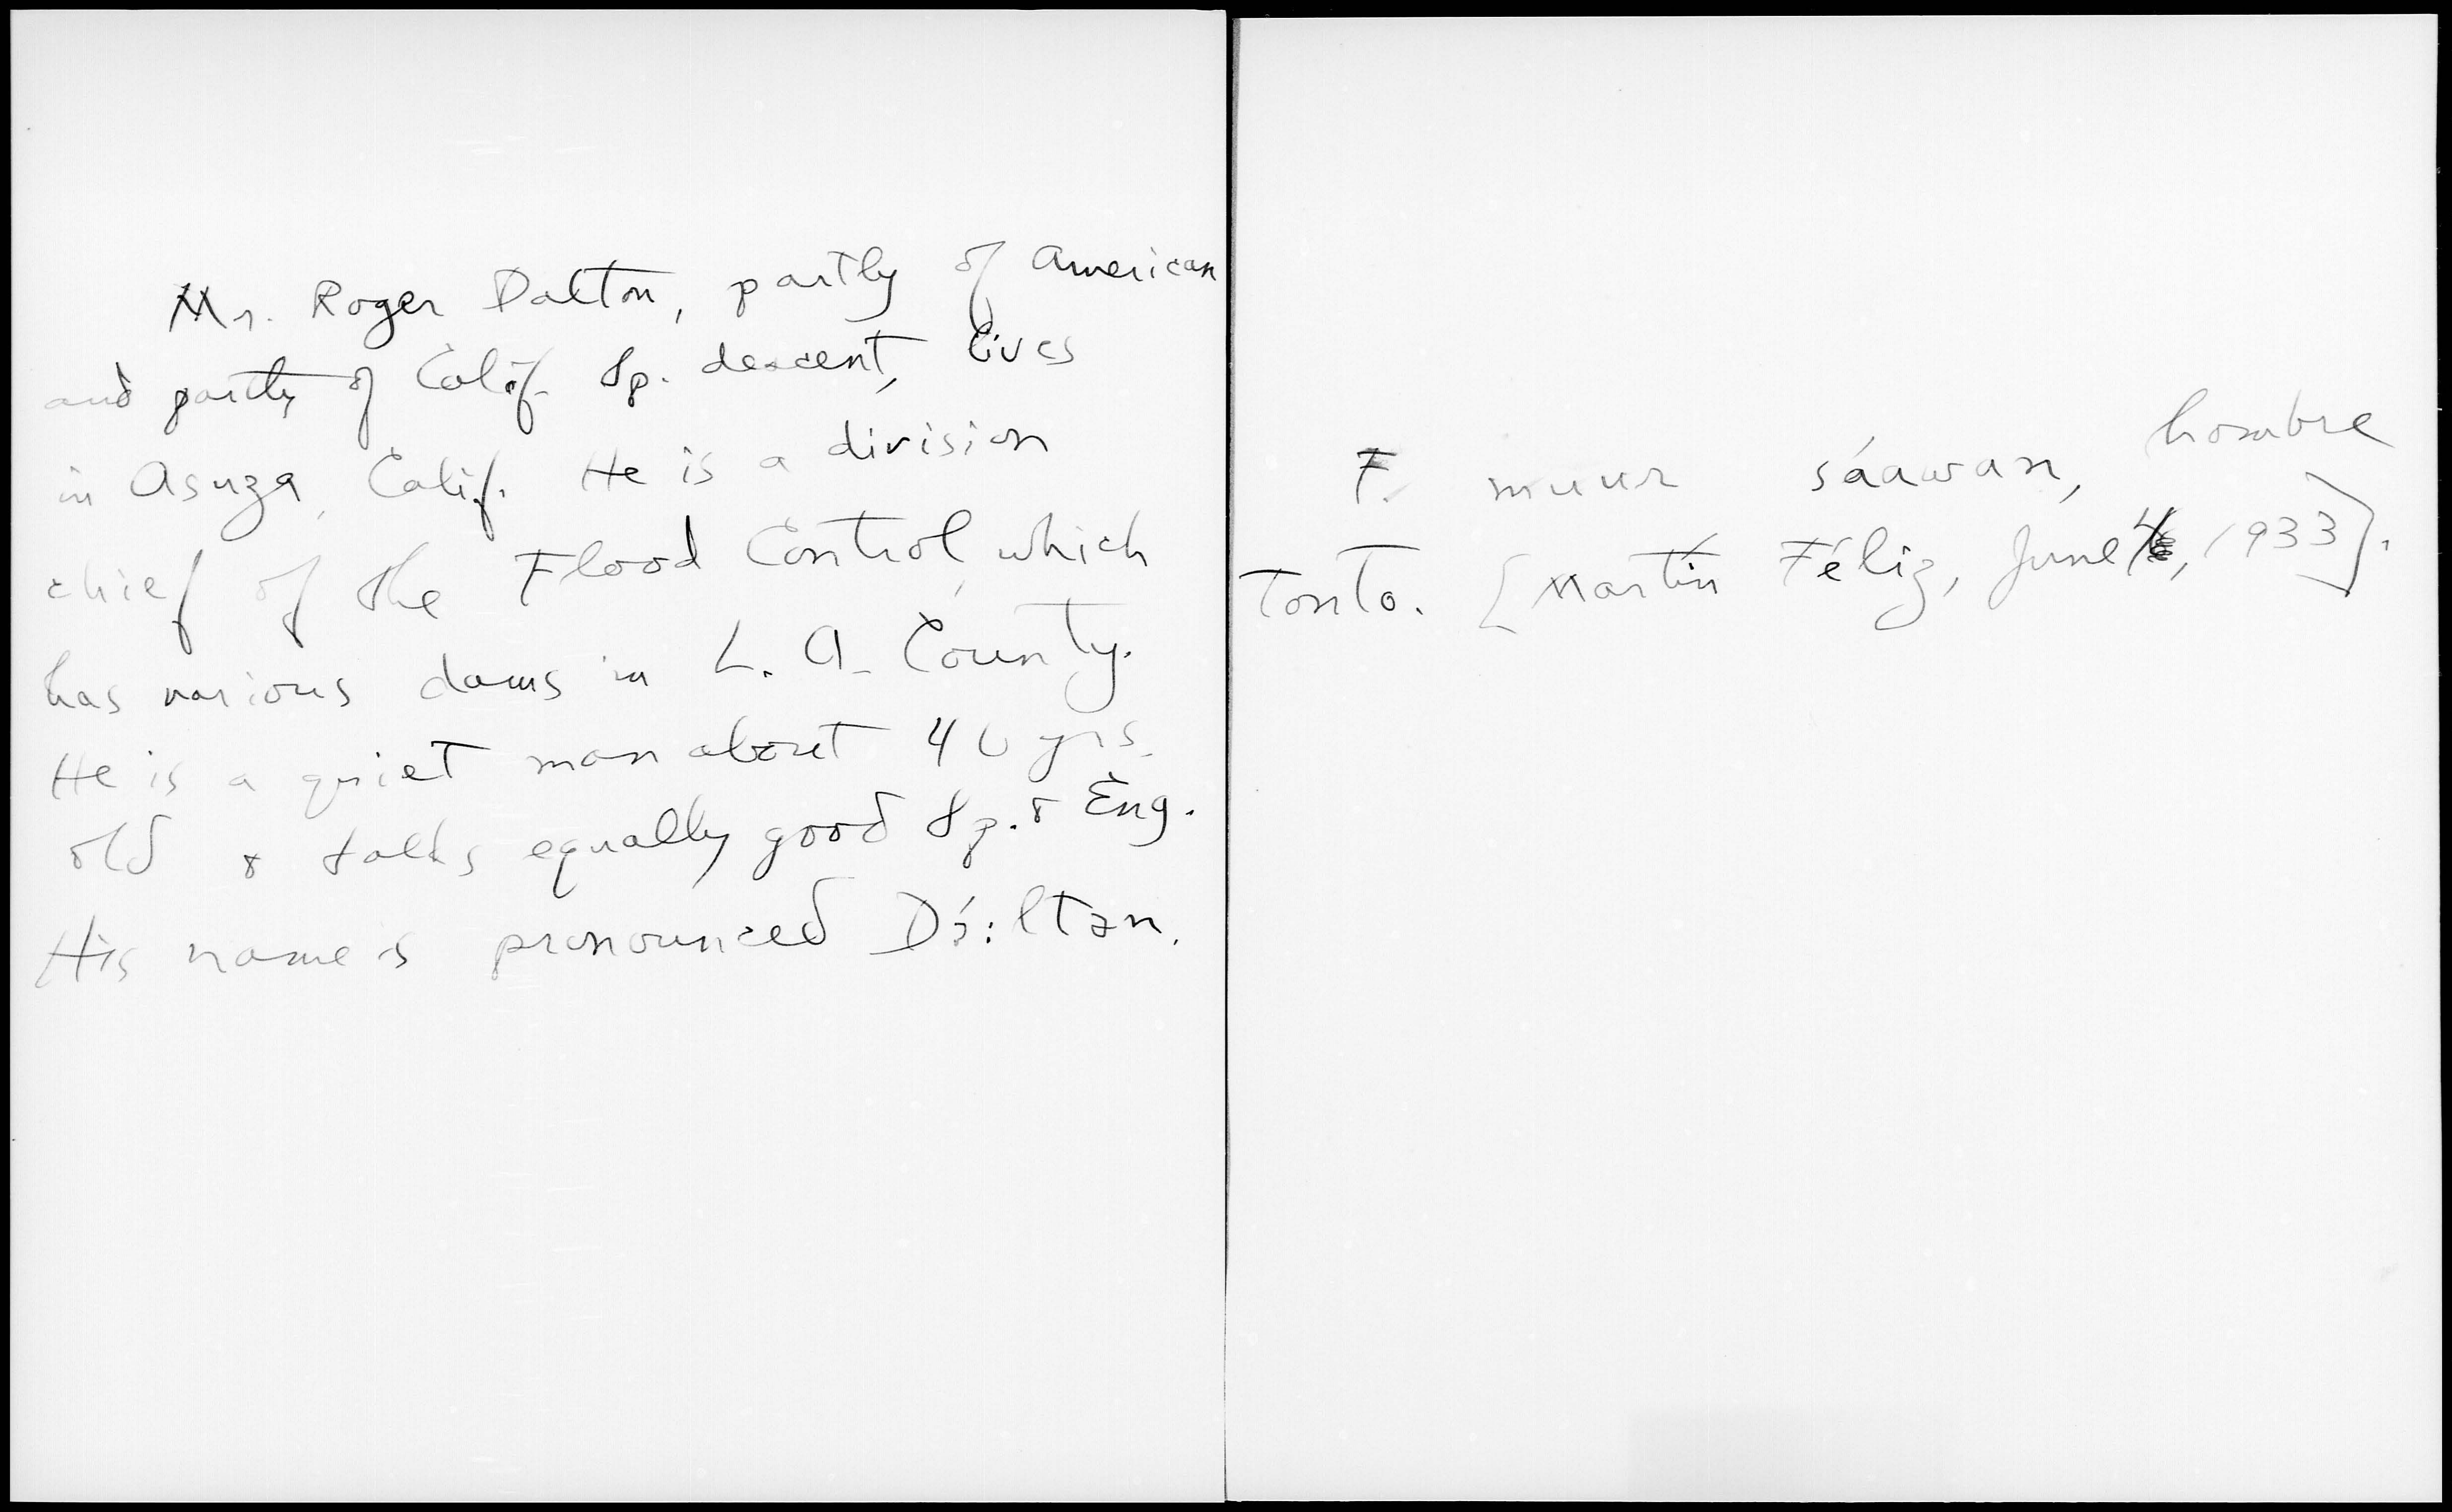 Mr. Roger Dalton, partly of American
and partly of Calif. Sp. descent, lives
in Asuza, Calif. He is a division
chief of the Flood Control, which
has various dams in L. A. County.
He is a quiet man about 40 yrs.
old & talks equally good Sp. & Eng.
His name is pronounced Dɔ́:ltən.
F. muur sáawan, hombre
tonto. [Martín Féliz, June 4, 1933].